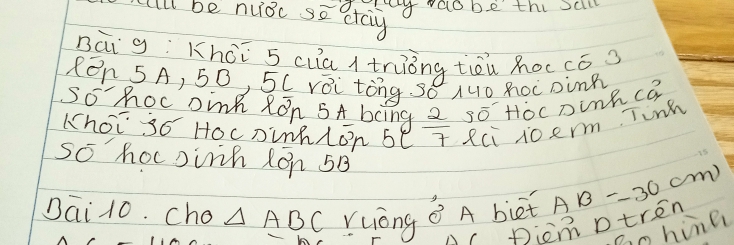 be nước sẽ đầy
vào bể thì sau
Bài 9 : Khối 5 của 1 trường tiểu học có 3
lớp 5A, 5B, 5C với tổng số 140 học sinh
số học sinh lớp 5A bằng 2/7 số Học sinh cả
Khối số Học sinh lớp 5C là 10 em. Tính
số học sinh lớp 5B
Bài 10. Cho Δ ABC vuông ở A biết AB = 30 cm
AC Điểm D trên